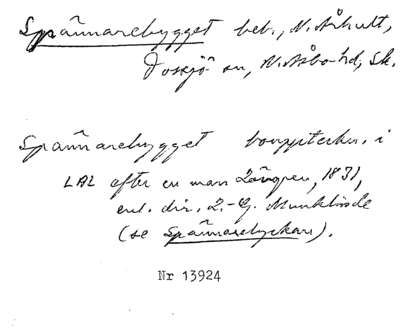 Spännarebygget beb., N. Århult,
Tossjö sn, N. Åsbo hd, Sk.
Spännarebygget bouppteckn. i
LAL efter en man Långren, 1831,
enl. dir. L.-G. Munkhinde
(se Spännarelyckan).
Nr 13924